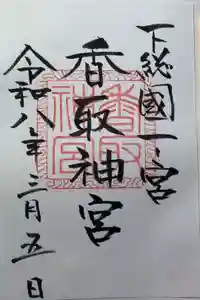 下総國一宮
香取神宮
令和八年三月五日